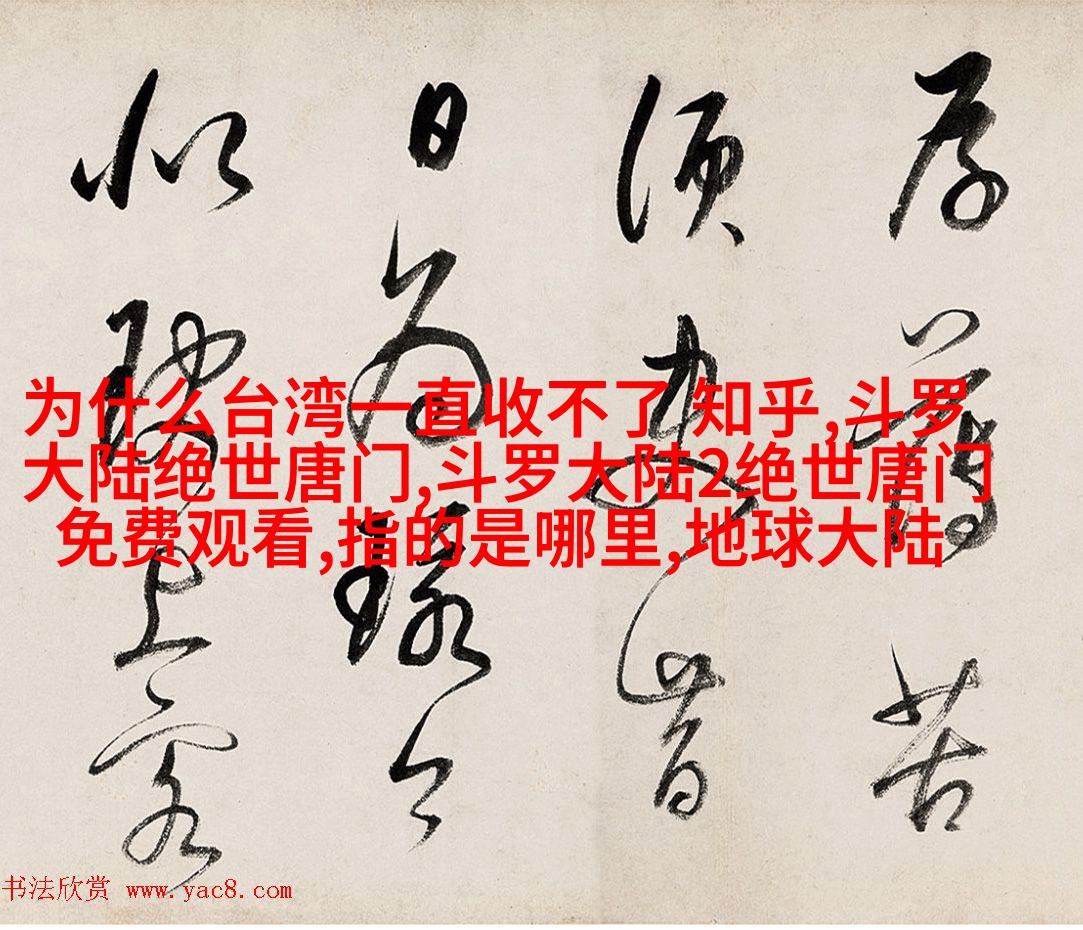 为什么台湾一直收不了 知乎,斗罗
大陆绝世唐门,斗罗大陆2绝世唐门
免费观看,指的是哪里,地球大陆
厚薄苦
须昔
日为
似上客
书法欣赏 www.yac8.com